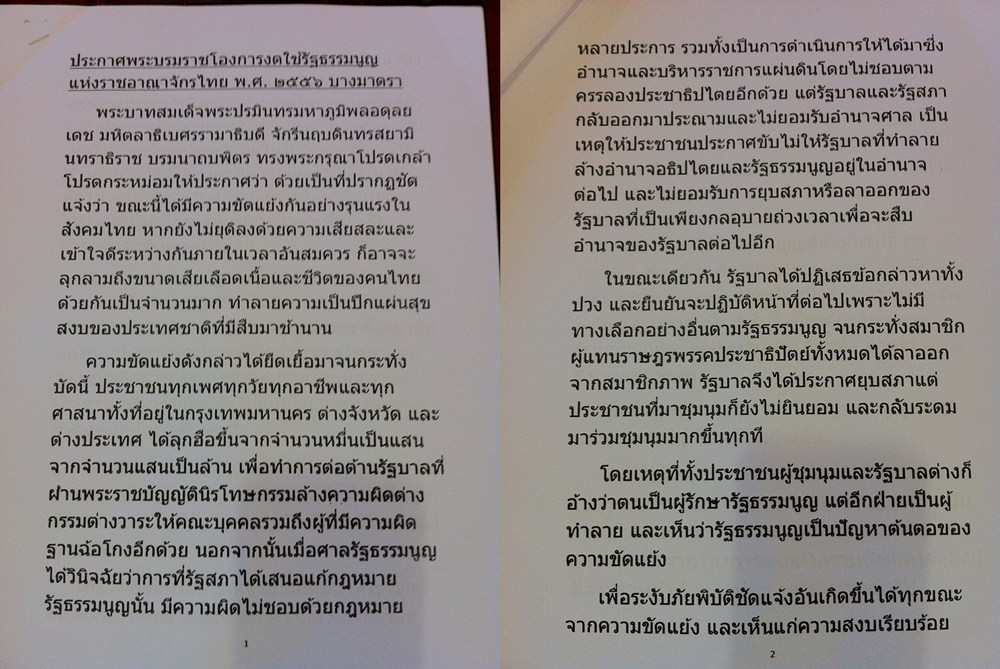 ประกาศพระบรมราชโองการงดใช้รัฐธรรมนูญ
แห่งราชอาณาจักรไทย พ.ศ. ๒๕๕๖ บางมาตรา
พระบาทสมเด็จพระปรมินทรมหาภูมิพลอดุลย
เดช มหิตลาธิเบศรรามาธิบดี จักรีนฤบดินทรสยามิ
นทราธิราช บรมนาถบพิตร ทรงพระกรุณาโปรดเกล้า
โปรดกระหม่อมให้ประกาศว่า ด้วยเป็นที่ปรากฏชัด
แจ้งว่า ขณะนี้ได้มีความขัดแย้งกันอย่างรุนแรงใน
สังคมไทย หากยังไม่ยุติลงด้วยความเสียสละและ
เข้าใจดีระหว่างกันภายในเวลาอันสมควร ก็อาจจะ
ลุกลามถึงขนาดเสียเลือดเนื้อและชีวิตของคนไทย
ด้วยกันเป็นจำนวนมาก ทำลายความเป็นปึกแผ่นสุข
สงบของประเทศชาติที่มีสืบมาช้านาน
ความขัดแย้งดังกล่าวได้ยืดเยื้อมาจนกระทั่ง
บัดนี้ ประชาชนทุกเพศทุกวัยทุกอาชีพและทุก
ศาสนาทั้งที่อยู่ในกรุงเทพมหานคร ต่างจังหวัด และ
ต่างประเทศ ได้ลุกฮือขึ้นจากจำนวนหมื่นเป็นแสน
จากจำนวนแสนเป็นล้าน เพื่อทำการต่อต้านรัฐบาลที่
ผ่านพระราชบัญญัตินิรโทษกรรมล้างความผิดต่าง
กรรมต่างวาระให้คณะบุคคลรวมถึงผู้ที่มีความผิด
ฐานฉ้อโกงอีกด้วย นอกจากนั้นเมื่อศาลรัฐธรรมนูญ
ได้วินิจฉัยว่าการที่รัฐสภาได้เสนอแก้กฎหมาย
รัฐธรรมนูญนั้น มีความผิดไม่ชอบด้วยกฎหมาย
1
หลายประการ รวมทั้งเป็นการดำเนินการให้ได้มาซึ่ง
อำนาจและบริหารราชการแผ่นดินโดยไม่ชอบตาม
ครรลองประชาธิปไตยอีกด้วย แต่รัฐบาลและรัฐสภา
กลับออกมาประณามและไม่ยอมรับอำนาจศาล เป็น
เหตุให้ประชาชนประกาศขับไม่ให้รัฐบาลที่ทำลาย
ล้างอำนาจอธิปไตยและรัฐธรรมนูญอยู่ในอำนาจ
ต่อไป และไม่ยอมรับการยุบสภาหรือลาออกของ
รัฐบาลที่เป็นเพียงกลอุบายถ่วงเวลาเพื่อจะสืบ
อำนาจของรัฐบาลต่อไปอีก
ในขณะเดียวกัน รัฐบาลได้ปฏิเสธข้อกล่าวหาทั้ง
ปวง และยืนยันจะปฏิบัติหน้าที่ต่อไปเพราะไม่มี
ทางเลือกอย่างอื่นตามรัฐธรรมนูญ จนกระทั่งสมาชิก
ผู้แทนราษฎรพรรคประชาธิปัตย์ทั้งหมดได้ลาออก
จากสมาชิกภาพ รัฐบาลจึงได้ประกาศยุบสภาแต่
ประชาชนที่มาชุมนุมก็ยังไม่ยินยอม และกลับระดม
มาร่วมชุมนุมมากขึ้นทุกที
โดยเหตุที่ทั้งประชาชนผู้ชุมนุมและรัฐบาลต่างก็
อ้างว่าตนเป็นผู้รักษารัฐธรรมนูญ แต่อีกฝ่ายเป็นผู้
ทำลาย และเห็นว่ารัฐธรรมนูญเป็นปัญหาต้นตอของ
ความขัดแย้ง
เพื่อระงับภัยพิบัติชัดแจ้งอันเกิดขึ้นได้ทุกขณะ
จากความขัดแย้ง และเห็นแก่ความสงบเรียบร้อย
2